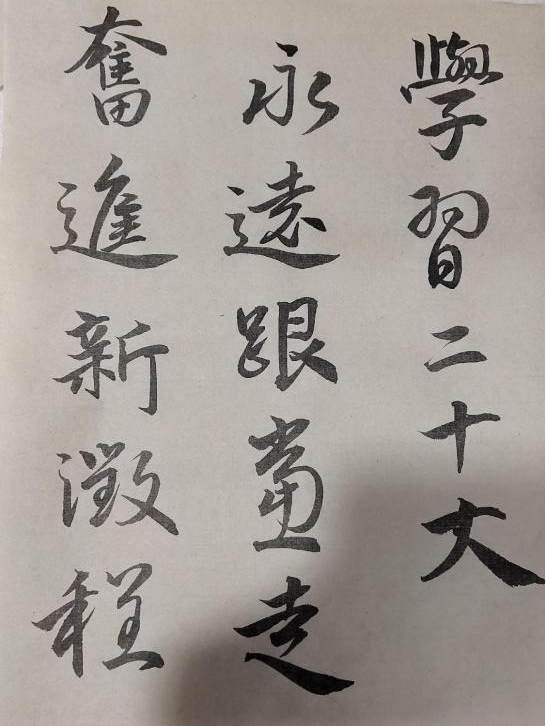 學習二十大
永遠跟黨走
奮進新徵程